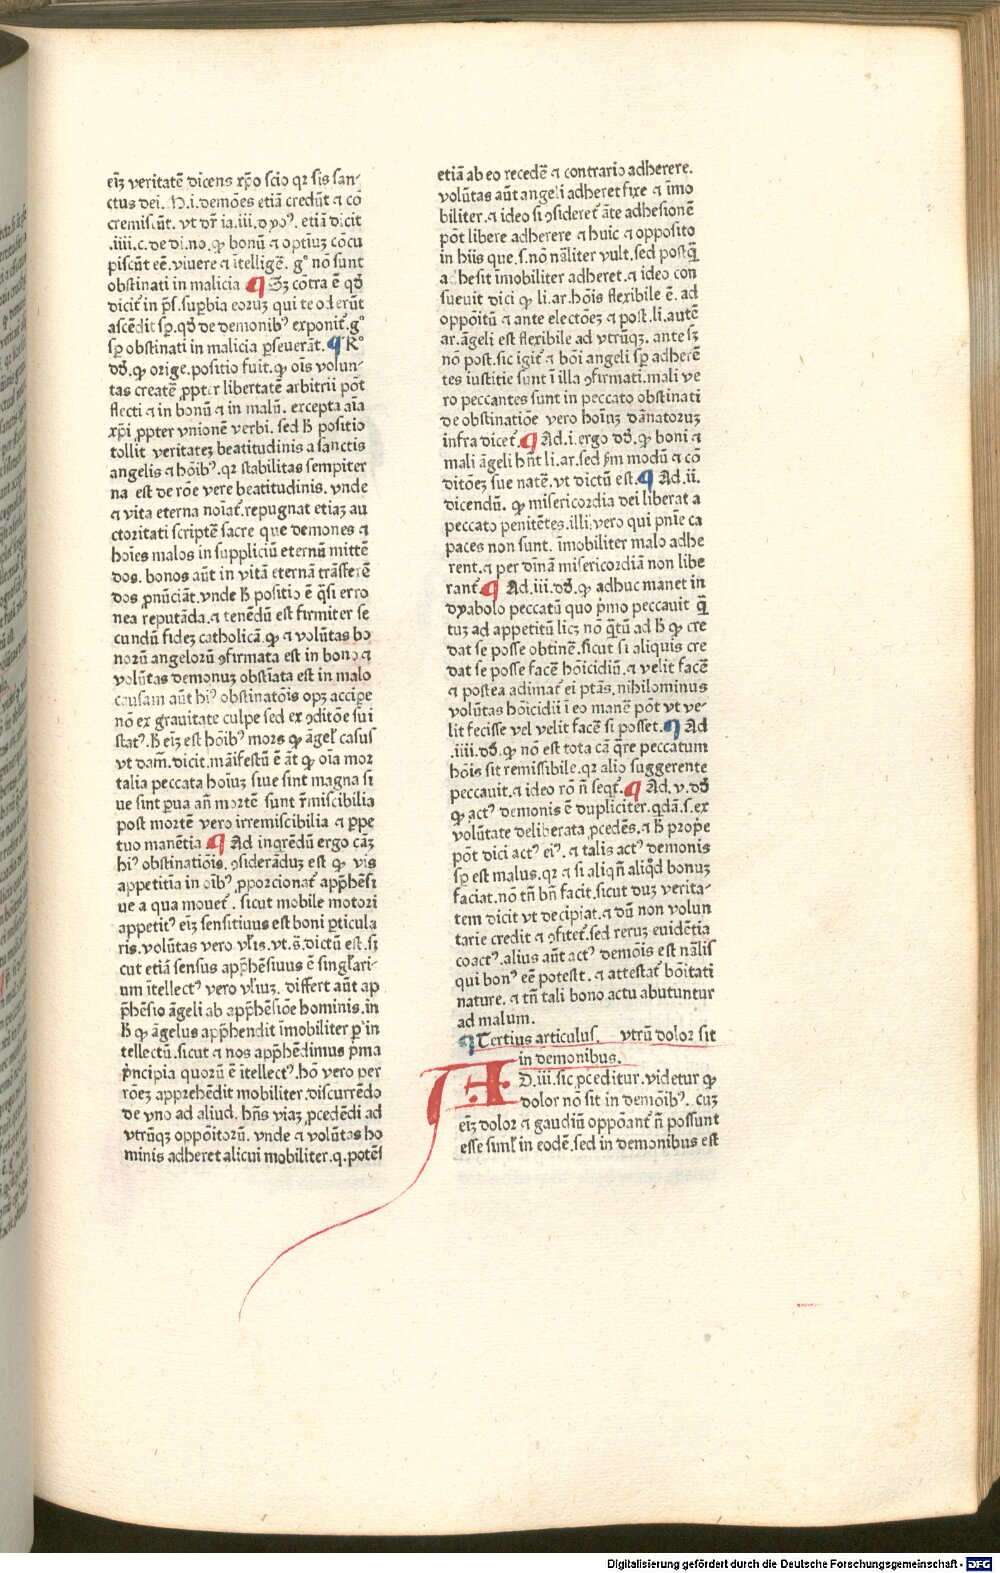 eiꝫ veritatē dicens xp̄o scio qꝛ sis san-
ctus dei. P.i.demōes etiā credūt ⁊ cō
cremiscūt. vt dr̄ ia.iii.dyoꝰ. etiā dicit
.iiii.c.de di.no.ꝙ bonū ⁊ optiuꝫ cōcu
piscūt eē.viuere ⁊ ītelligē. gº nō sunt
obstinati in malicia ¶ Sꝫ cōtra ē qđ
dicit̄ in pˢ.suꝑbia eoruꝫ qui te oderūt
ascēdit sꝑ.qđ de demonibꝰ exponit̄.gº
sꝑ obstinati in malicia ꝑseuerāt. ¶ Rº
dđ.ꝙ orige.positio fuit.ꝙ oīs volun-
tas createē ꝓpter libertatē arbitrii pōt
flecti ⁊ in bonū ⁊ in malū. excepta aīa
xp̄i ꝓpter vnionē verbi. sed h̄ positio
tollit veritateꝫ beatitudinis a sanctis
angelis ⁊ hōibꝰ.qꝛ stabilitas sempiter
na est de rōe vere beatitudinis. vnde
⁊ vita eterna noīat̄.repugnat etiaꝫ au
ctoritati scriptē sacre que demones ⁊
hoīes malos in suppliciū eternū mittē
dos. bonos aūt in vitā eternā trāsferē
dos ꝓnūciāt.vnde h̄ positio ē q̄si erro
nea reputāda.⁊ tenēdū est firmiter se
cundū fideꝫ catholicā.ꝙ ⁊ volūtas bo
norū angelorū ꝯfirmata est in bono ⁊
volūtas demonuꝫ obstīata est in malo
causam aūt hiꝰ obstinatōis opꝫ accipe
nō ex grauitate culpe sed ex ꝯditōe sui
statꝰ.h̄ eiꝫ est hōibꝰ mors ꝙ āgel̄ casus
vt dam̄.dicit.māifestū ē āt ꝙ oīa mor
talia peccata hoīuꝫ siue sint magna si
ue sint ꝑua an̄ mortē sunt r̄miscibilia
post mortē vero irremiscibilia ⁊ ꝑpe
tuo manētia ¶ Ad inqrēdū ergo cāꝫ
hiꝰ obstinatiōis.ꝯsiderāduꝫ est ꝙ vis
appetitia in oībꝰ ꝓporcionat̄ app̄hēsi
ue a qua mouet̄. sicut mobile motori
appetitꝰ eiꝫ sensitiuus est boni ꝑticula
ris.volūtas vero vl̄is.vt.s̄.dictū est.si
cut etiā sensus app̄hēsiuus ē singl̄ari-
um ītellectꝰ vero vl̄iuꝫ. differt aūt ap
p̄hēsio āgeli ab app̄hēsiōe hominis.in
h̄ ꝙ āgelus app̄hendit īmobiliter p̄ in
tellectū.sicut ⁊ nos app̄hēdimus p̄ma
p̄ncipia quorū ē ītellectꝰ.hō vero per
rōeꝫ apprehēdit mobiliter.discurrēdo
de vno ad aliud. hn̄s viaꝫ ꝓcedēdi ad
vtrūqꝫ oppōitorū. vnde ⁊ volūtas ho
minis adheret alicui mobiliter.q.potēs
etiā ab eo recedē ⁊ contrario adherere.
volūtas aūt angeli adheret fixe ⁊ īmo
biliter.⁊ ideo si ꝯsideret̄ āte adhesionē
pōt libere adherere ⁊ huic ⁊ opposito
in hiis que.s.nō nāliter vult.sed postq̄
adhesit īmobiliter adheret.⁊ ideo con
sueuit dici ꝙ li.ar.hōis flexibile ē. ad
oppōitū ⁊ ante electōeꝫ ⁊ post.li.autē
ar.āgeli est flexibile ad vtrūqꝫ. ante sꝫ
nō post.sic igit̄ ⁊ bōi angeli sꝑ adherē
tes iustitie sunt ī illa ꝯfirmati.mali ve
ro peccantes sunt in peccato obstinati
de obstinatiōe vero hoīuꝫ dānatoruꝫ
infra dicet̄. ¶ Ad.i.ergo dđ.ꝙ boni ⁊
mali āgeli hn̄t li.ar.sed ẜm modū ⁊ cō
ditōeꝫ sue natē.vt dictū est. ¶ Ad.ii.
dicendū. ꝙ misericordia dei liberat a
peccato penitētes.illi vero qui pn̄ie ca
paces non sunt. īmobiliter malo adhe
rent.⁊ per dīnā misericordiā non libe
rant̄. ¶ Ad.iii.dđ.ꝙ adhuc manet in
dyabolo peccatū quo p̄mo peccauit q̄
tuꝫ ad appetitū licꝫ nō q̄tū ad h̄ ꝙ cre
dat se posse obtinē.sicut si aliquis cre
dat se posse facē hōicidiū.⁊ velit facē
⁊ postea adimat̄ ei ptās.nihilominus
volūtas hōicidii ī eo manē pōt vt ve-
lit fecisse vel velit facē si posset. ¶ Ad
.iiii.dđ.ꝙ nō est tota cā q̄re peccatum
hōis sit remissibile.qꝛ alio suggerente
peccauit.⁊ ideo rō n̄ seqt̄. ¶ Ad.v.dđ
ꝙ actꝰ demonis ē dupliciter.qdā.s.ex
volūtate deliberata ꝓcedēs.⁊ h̄ prop̄e
pōt dici actꝰ eiꝰ. ⁊ talis actꝰ demonis
sꝑ est malus.qꝛ ⁊ si aliqn̄ aliqđ bonuꝫ
faciat.nō tn̄ bn̄ facit.sicut duꝫ verita-
tem dicit vt decipiat.⁊ dū non volun
tarie credit ⁊ ꝯfitet̄.sed reruꝫ euidētia
coactꝰ.alius aūt actꝰ demōis est nālis
qui bonꝰ eē potest. ⁊ attestat̄ bōitati
nature. ⁊ tn̄ tali bono actu abutuntur
ad malum.
¶ Tertius articulus. vtrū dolor sit
in demonibus.
AD.iii.sic ꝓceditur.videtur ꝙ
dolor nō sit in demōibꝰ. cuꝫ
eiꝫ dolor ⁊ gaudiū oppōant̄ n̄ possunt
esse siml̄ in eodē.sed in demonibus est
Digitalisierung gefördert durch die Deutsche Forschungsgemeinschaft - DFG